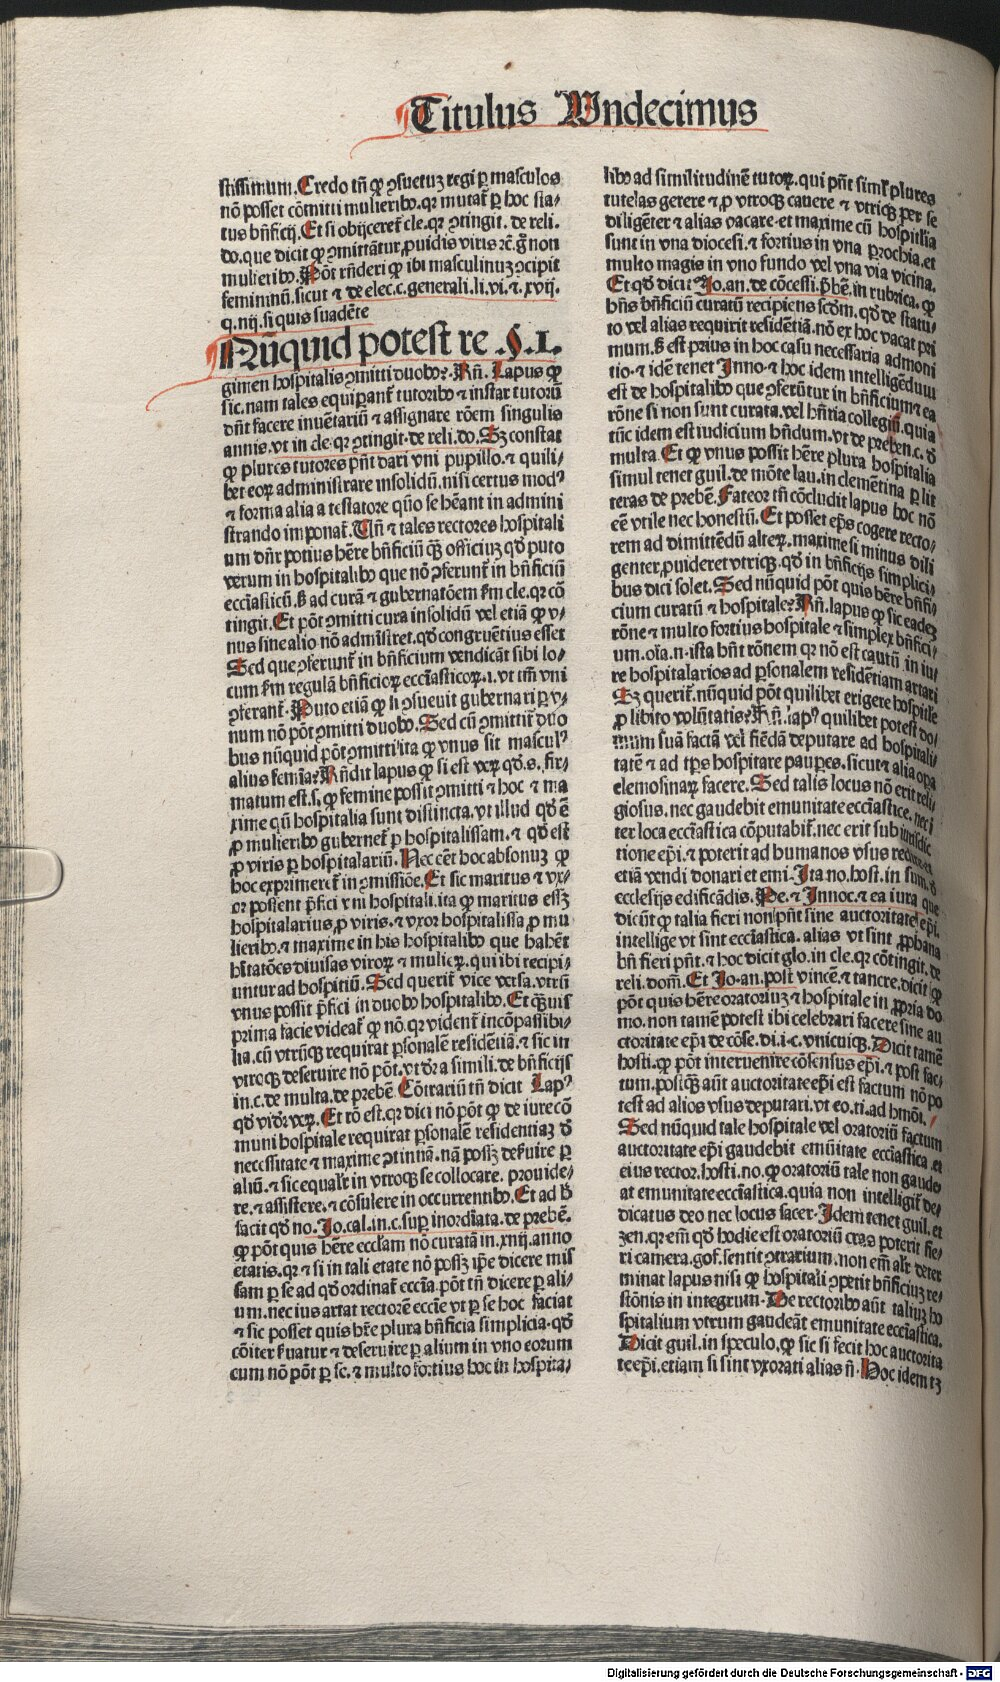 Titulus Undecimus
stissimum. Credo tñ qꝙ ↄsuetuȝ regi ꝑ masculos
nõ posset cõmitti mulieribꝰ. qr mutat̃ ꝑ hoc sta-
tus bñficij. Et si obijceret̃ cle. qr ↄtingit. de reli.
do. que dicit ꝙ ↄmittãtur ꝓuidis viris ⁊c. g̃ non
mulieribꝰ. Põt rñderi ꝙ ibi masculinuȝ ↄcipit
femininũ. sicut ⁊ de elec. c. generali. li. vi. ⁊. xvij.
q. iiij. si quis suadẽte
Nũquid potest re .§.1.
gimen hospitalis ↄmitti duobꝰ? Rñ. Lapus ꝙ
sic. nam tales equiparant̃ tutoribꝰ ⁊ instar tutorũ
dñt facere inuẽtariũ ⁊ assignare rõem singulis
annis. vt in cle. qr ↄtingit. de reli. do. Sȝ constat
ꝙ plures tutores pñt dari vni pupillo. ⁊ quili-
bet eoꝝ administrare insolidũ. nisi certus modꝰ
⁊ forma alia a testatore qño se hẽant in admini
strando imponat̃. Tñ ⁊ tales rectores hospitali
um dñr potius hẽre bñficiũ q̃ȝ officiuȝ qđ puto
verum in hospitalibꝰ que nõ ↄferunt̃ in bñficiũ
ecclĩasticũ. ß ad curã ⁊ gubernatõem ẜm cle. qr cõ
tingit. Et põt ↄmitti cura insolidũ vel etiã ꝙ v-
nus sine alio nõ admĩstret. qđ congruẽtius esset
Sed que ↄferunt̃ in bñficium vendicãt sibi lo-
cum ẜm regulã bñficioꝝ ecclĩasticoꝝ. ⁊. vt tm̃ vni
ↄferant̃. Puto etiã ꝙ si ↄsueuit gubernari ꝑ v-
num nõ põt ↄmitti duobꝰ. Sed cũ ↄmittit̃ duo
bus nũquid põt ↄmitti ita ꝙ vnus sit masculꝰ
alius femĩa? Rñdit lapus ꝙ si est veꝝ qđ. s. fir-
matum est. s. ꝙ femine possit ↄmitti ⁊ hoc ⁊ ma
xime qũ hospitalia sunt distincta. vt illud qđ ẽ
ꝓ mulieribꝰ gubernet̃ ꝑ hospitalissam. ⁊ qđ est
ꝓ viris ꝑ hospitalariũ. Nec eẽt hoc absonuȝ ꝙ
hoc exprimeret̃ in ↄmissiõe. Et sic maritus ⁊ vx-
or possent p̃fici vni hospitali. ita ꝙ maritus essȝ
hospitalarius ꝓ viris. ⁊ vxor hospitalissa ꝓ mu
lieribꝰ. ⁊ maxime in his hospitalibꝰ que habẽt
hĩtatões diuisas viroꝝ ⁊ mulieꝝ. qui ibi recipi-
untur ad hospitiũ. Sed querit̃ vice versa. vtrũ
vnus possit p̃fici in duobꝰ hospitalibꝰ. Et q̃ȝuis
prima facie videat̃ ꝙ nõ. qr vident̃ incõpassibi-
lia. cũ vtrũqȝ requirat ꝑsonalẽ residẽtiã. ⁊ sic in
vtroqȝ deseruire nõ põt. vt đr a simili. de bñficijs
in. c. de multa. de prebẽ. Cõtrariũ tñ dicit Lapꝰ
qđ viđr veꝝ. Et rõ est. qr dici nõ põt ꝙ de iure cõ
muni hospitale requirat ꝑsonalẽ residentiaȝ đ
necessitate ⁊ maxime ↄtinuã. nã possȝ deẜuire ꝑ
aliũ. ⁊ sic equalr̃ in vtroqȝ se collocare. prouide-
re. ⁊ assistere. ⁊ cõsulere in occurrentibꝰ. Et ad ħ
facit qđ no. Jo. cal. in. c. suꝑ inordĩata. de prebẽ.
ꝙ põt quis hẽre ecclam nõ curatã in. xiiij. anno
etatis. qr ⁊ si in tali etate nõ possȝ ip̃e dicere mis
sam ꝑ se ad qđ ordinat̃ ecclĩa. põt tñ dicere ꝑ ali-
um. nec ius artat rectorẽ ecclĩe vt ꝑ se hoc faciat
⁊ sic posset quis hr̃e plura bñficia simplicia. qđ
cõiter ẜuatur ⁊ deseruire ꝑ alium in vno eorum
cum nõ põt ꝑ se. ⁊ multo fortius hoc in hospita-
libꝰ ad similitudinẽ tutoꝝ. qui pñt simĩr plures
tutelas gerere ⁊ ꝓ vtroqȝ cauere ⁊ vtriqȝ per se
diligẽter ⁊ alias vacare. et maxime cũ hospitlia
sunt in vna diocesi. ⁊ fortius in vna ꝑrochia. et
multo magis in vno fundo vel vna via vicina.
Et qđ dicit Jo. an. de cõcessi. p̃bẽ. in rubrica. ꝙ
hñs bñficiũ curatũ recipiens scđm. qđ de statu-
to vel alias requirit residẽtiã. nõ ex hoc vacat pri
mum. ß est prius in hoc casu necessaria admoni
tio. ⁊ idẽ tenet Inno. ⁊ hoc idem intelligẽduȝ
est de hospitalibꝰ que ↄferũtur in bñficium ⁊ ea
rõne si non sunt curata. vel hñtia collegiũ. quia
tũc idem est iudicium bñdum. vt de preben. c. đ
multa. Et ꝙ vnus possit hẽre plura hospitalia
simul tenet guil. de mõte lau. in clemẽtina ꝑ lit
teras de prebẽ. Fateor tñ cõcludit lapus hoc nõ
eẽ vtile nec honestũ. Et posset ep̃s cogere recto-
rem ad dimittẽdũ alteꝝ. maxime si minus dili
genter ꝓuideret vtriqȝ. qđ in bñficijs simplici-
bus dici solet. Sed nũquid põt quis hẽre bñfi-
cium curatũ ⁊ hospitale? Rñ. lapus ꝙ sic eadeȝ
rõne ⁊ multo fortius hospitale ⁊ simplex bñfici-
um. oĩa. n. ista hñt rõnem qr nõ est cautũ in iu-
re hospitalarios ad ꝑsonalem residẽtiam artari
Sȝ querit̃. nũquid põt quilibet erigere hospitale
ꝓ libito volũtatis? Rñ. lapꝰ quilibet potest do-
mum suã factã vel fiẽdã deputare ad hospitali-
tatẽ ⁊ ad tp̃s hospitare pauꝑes. sicut ⁊ alia opa
elemosinaꝝ facere. Sed talis locus nõ erit reli-
giosus. nec gaudebit emunitate ecclĩastice. nec i
ter loca ecclĩastica cõputabit̃. nec erit sub iurisdic
tione ep̃i. ⁊ poterit ad humanos vsus
etiã vendi donari et emi. Ita no. host. in sum. đ
ecclesijs edificãdis. Pe. ⁊ Innoc. ⁊ ea iura que
dicũt ꝙ talia fieri non pñt sine auctoritate ep̃i.
intellige vt sint ecclĩastica. alias vt sint ꝓphana
bñ fieri pñt. ⁊ hoc dicit glo. in cle. qr cõtingit. de
reli. dom̃. Et Jo. an. post vincẽ. ⁊ tancre. dicit ꝙ
põt quis hẽre oratoriuȝ ⁊ hospitale in ꝓpria do
mo. non tamẽ potest ibi celebrari facere sine au
ctoritate ep̃i de cõse. di. i. c. vnicuiqȝ. Dicit tamẽ
hosti. ꝙ põt interuenire cõsensus ep̃i. ⁊ post fac-
tum. postqȝ aũt auctoritate ep̃i est factum nõ po
test ad alios vsus deputari. vt eo. ti. ad hmõi.
Sed nũquid tale hospitale vel oratoriũ factum
auctoritate ep̃i gaudebit emũitate ecclĩastica. et
eius rector. hosti. no. ꝙ oratoriũ tale non gaude
at emunitate ecclĩastica. quia non intelligit̃ de-
dicatus deo nec locus sacer. Idem tenet guil. et
ȝen. qr em̃ qđ hodie est oratoriũ cras poterit fie-
ri camera. gof. sentit ↄtrarium. non em̃ alr̃ deter
minat lapus nisi ꝙ hospitali ↄpetit bñficiuȝ re-
stõnis in integrum. De rectoribꝰ aũt taliuȝ ho
spitalium vtrum gaudeãt emunitate ecclĩastica.
Dicit guil. in speculo. ꝙ sic si fecit hoc auctorita
te ep̃i. etiam si sint vxorati alias ñ. Hoc idem tȝ
Digitalisierung gefördert durch die Deutsche Forschungsgemeinschaft - DFG